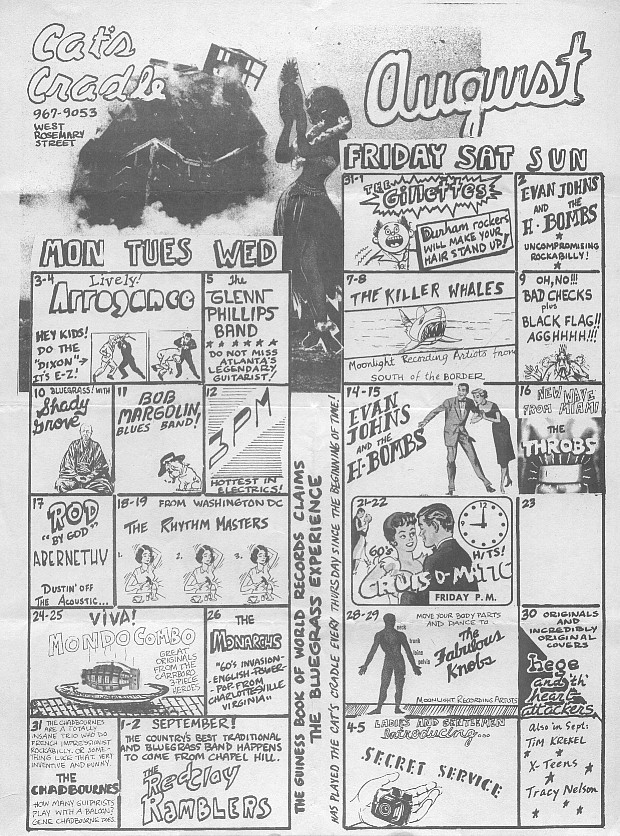 Cat's
Cradle
967-9053
WEST
ROSEMARY
STREET
August
FRIDAY SAT SUN
MON TUES WED
31-1
THE
Gillettes
Durham rockers
WILL MAKE YOUR
HAIR STAND UP!
2
EVAN JOHNS
AND THE
H-BOMBS
UNCOMPROMISING
ROCKABILLY!
3-4
Lively!
Arrogance
HEY KIDS!
DO THE
"DIXON"
IT'S E-Z!
5
The
GLENN
PHILLIPS
BAND
DO NOT MISS
ATLANTA'S
LEGENDARY
GUITARIST!
7-8
THE KILLER WHALES
Moonlight Recording Artists from
SOUTH of the BORDER
9
OH, NO!!!
BAD CHECKS
plus
BLACK FLAG!!
AGGHHHH!!!
10
BLUEGRASS! WITH
Shady
Grove
11
BOB
MARGOLIN,
BLUES BAND!
12
3PM
HOTTEST IN
ELECTRICS!
14-15
EVAN
JOHNS
AND THE
H-BOMBS
16
NEW WAVE
FROM MIAMI
THE
THROBS
17
ROD
"BY GOD"
ABERNETHY
DUSTIN' OFF
THE ACOUSTIC...
18-19 FROM WASHINGTON DC
THE RHYTHM MASTERS
1. 2. 3.
21-22
60's
HITS!
CRUIS-O-MATIC
FRIDAY P.M.
23
24-25
VIVA!
MONDO COMBO
GREAT
ORIGINALS
FROM THE
CARRBORO
3-PIECE
HEROES
26
THE
MONARCHS
"60'S INVASION-
-ENGLISH-POWER-
-POP-FROM
CHARLOTTESVILLE
VIRGINIA"
28-29
MOVE YOUR BODY PARTS
AND DANCE TO
The
Fabulous
Knobs
neck
trunk
loins
pelvis
MOONLIGHT RECORDING ARTISTS
30 ORIGINALS
AND
INCREDIBLY
ORIGINAL
COVERS
hege
and 'th'
heart
attackers
31
THE CHADBOURNES
ARE A TOTALLY
INSANE TRIO WHO DO
FRENCH IMPRESSIONIST
ROCKABILLY. OR SOME-
THING LIKE THAT. VERY
INVENTIVE AND FUNNY.
THE
CHADBOURNES
HOW MANY GUITARISTS
PLAY WITH A BALOON?
GENE CHADBOURNE DOES.
1-2 SEPTEMBER!
THE COUNTRY'S BEST TRADITIONAL
AND BLUEGRASS BAND HAPPENS
TO COME FROM CHAPEL HILL.
THE
Red Clay
RAMBLERS
4-5
LADIES AND GENTLEMEN
Introducing...
SECRET SERVICE
also in Sept:
TIM KREKEL
X-Teens
Tracy Nelson
THE GUINESS BOOK OF WORLD RECORDS CLAIMS
THE BLUEGRASS EXPERIENCE
HAS PLAYED THE CAT'S CRADLE EVERY THURSDAY SINCE THE BEGINNING OF TIME!